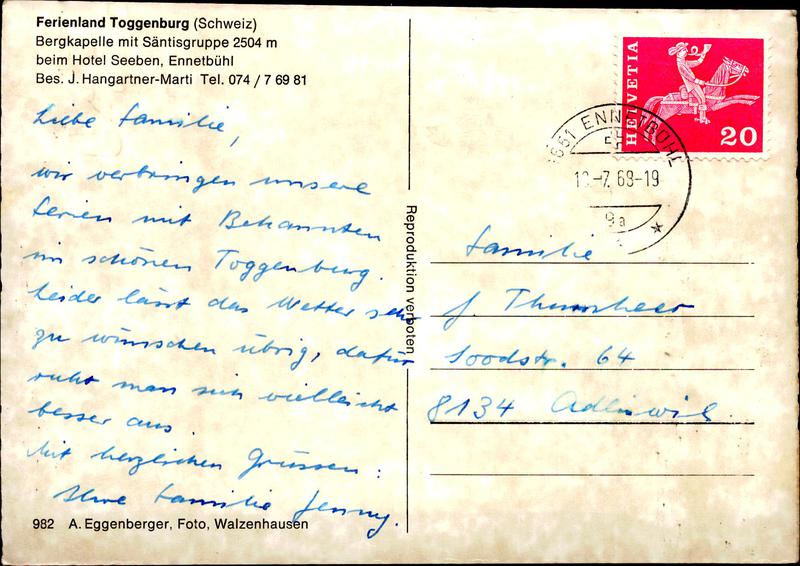 Ferienland Toggenburg (Schweiz)
Bergkapelle mit Säntisgruppe 2504 m
beim Hotel Seeben, Ennetbühl
Bes. J. Hangartner-Marti Tel. 074 / 7 69 81
Liebe Familie,
wir verbringen unsere
Ferien mit Bekannten
im schönen Toggenburg.
Leider lässt das Wetter sehr
zu wünschen übrig, dafür
ruht man sich vielleicht
besser aus.
Mit herzlichen Grüssen:
Ihre Familie Jenny.
982 A. Eggenberger, Foto, Walzenhausen
Reproduktion verboten
HELVETIA
20
9651 ENNETBÜHL
-7.68-19
9a
Familie
J. Thurnheer
Soodstr. 64
8134 Adliswil